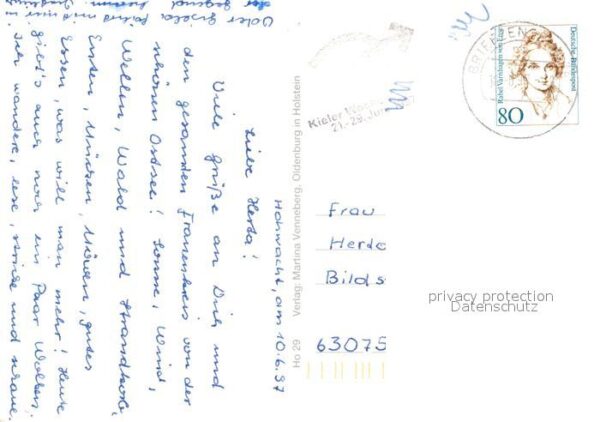 Hohwacht, am 10.6.97
Liebe Herta!
Viele Grüße an Dich und
den gesamten Frauenkreis von der
schönen Ostsee! Sonne, Wind,
Wellen, Wald und Strandkorb,
Enten, Mücken, Möwen, gutes
Essen, was will man mehr! Heute
gibt's auch noch ein Paar Wolken.
Ich wandere, lese, stricke und schaue
der Gegend
Gisela
Ho 29 Verlag: Martina Venneberg, Oldenburg in Holstein
Kieler Woche
21.-29. Juni
BRIEFZEN
Deutsche Bundespost
Rahel Varnhagen von Ense
80
Frau
Herte
Bilds
63075
privacy protection
Datenschutz